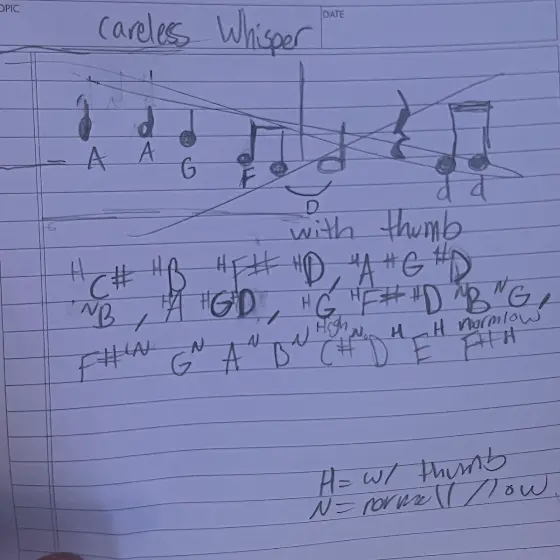 OPIC
DATE
Careless Whisper
A A G F D d d
with thumb
H C# H B H F# H D, H A H G H D
N B, H A H G H D, H G H F# H D N B N G,
High N normlow
F# LN G N A N B N C# D H E H F# H
H = w/ thumb
N = normal / low